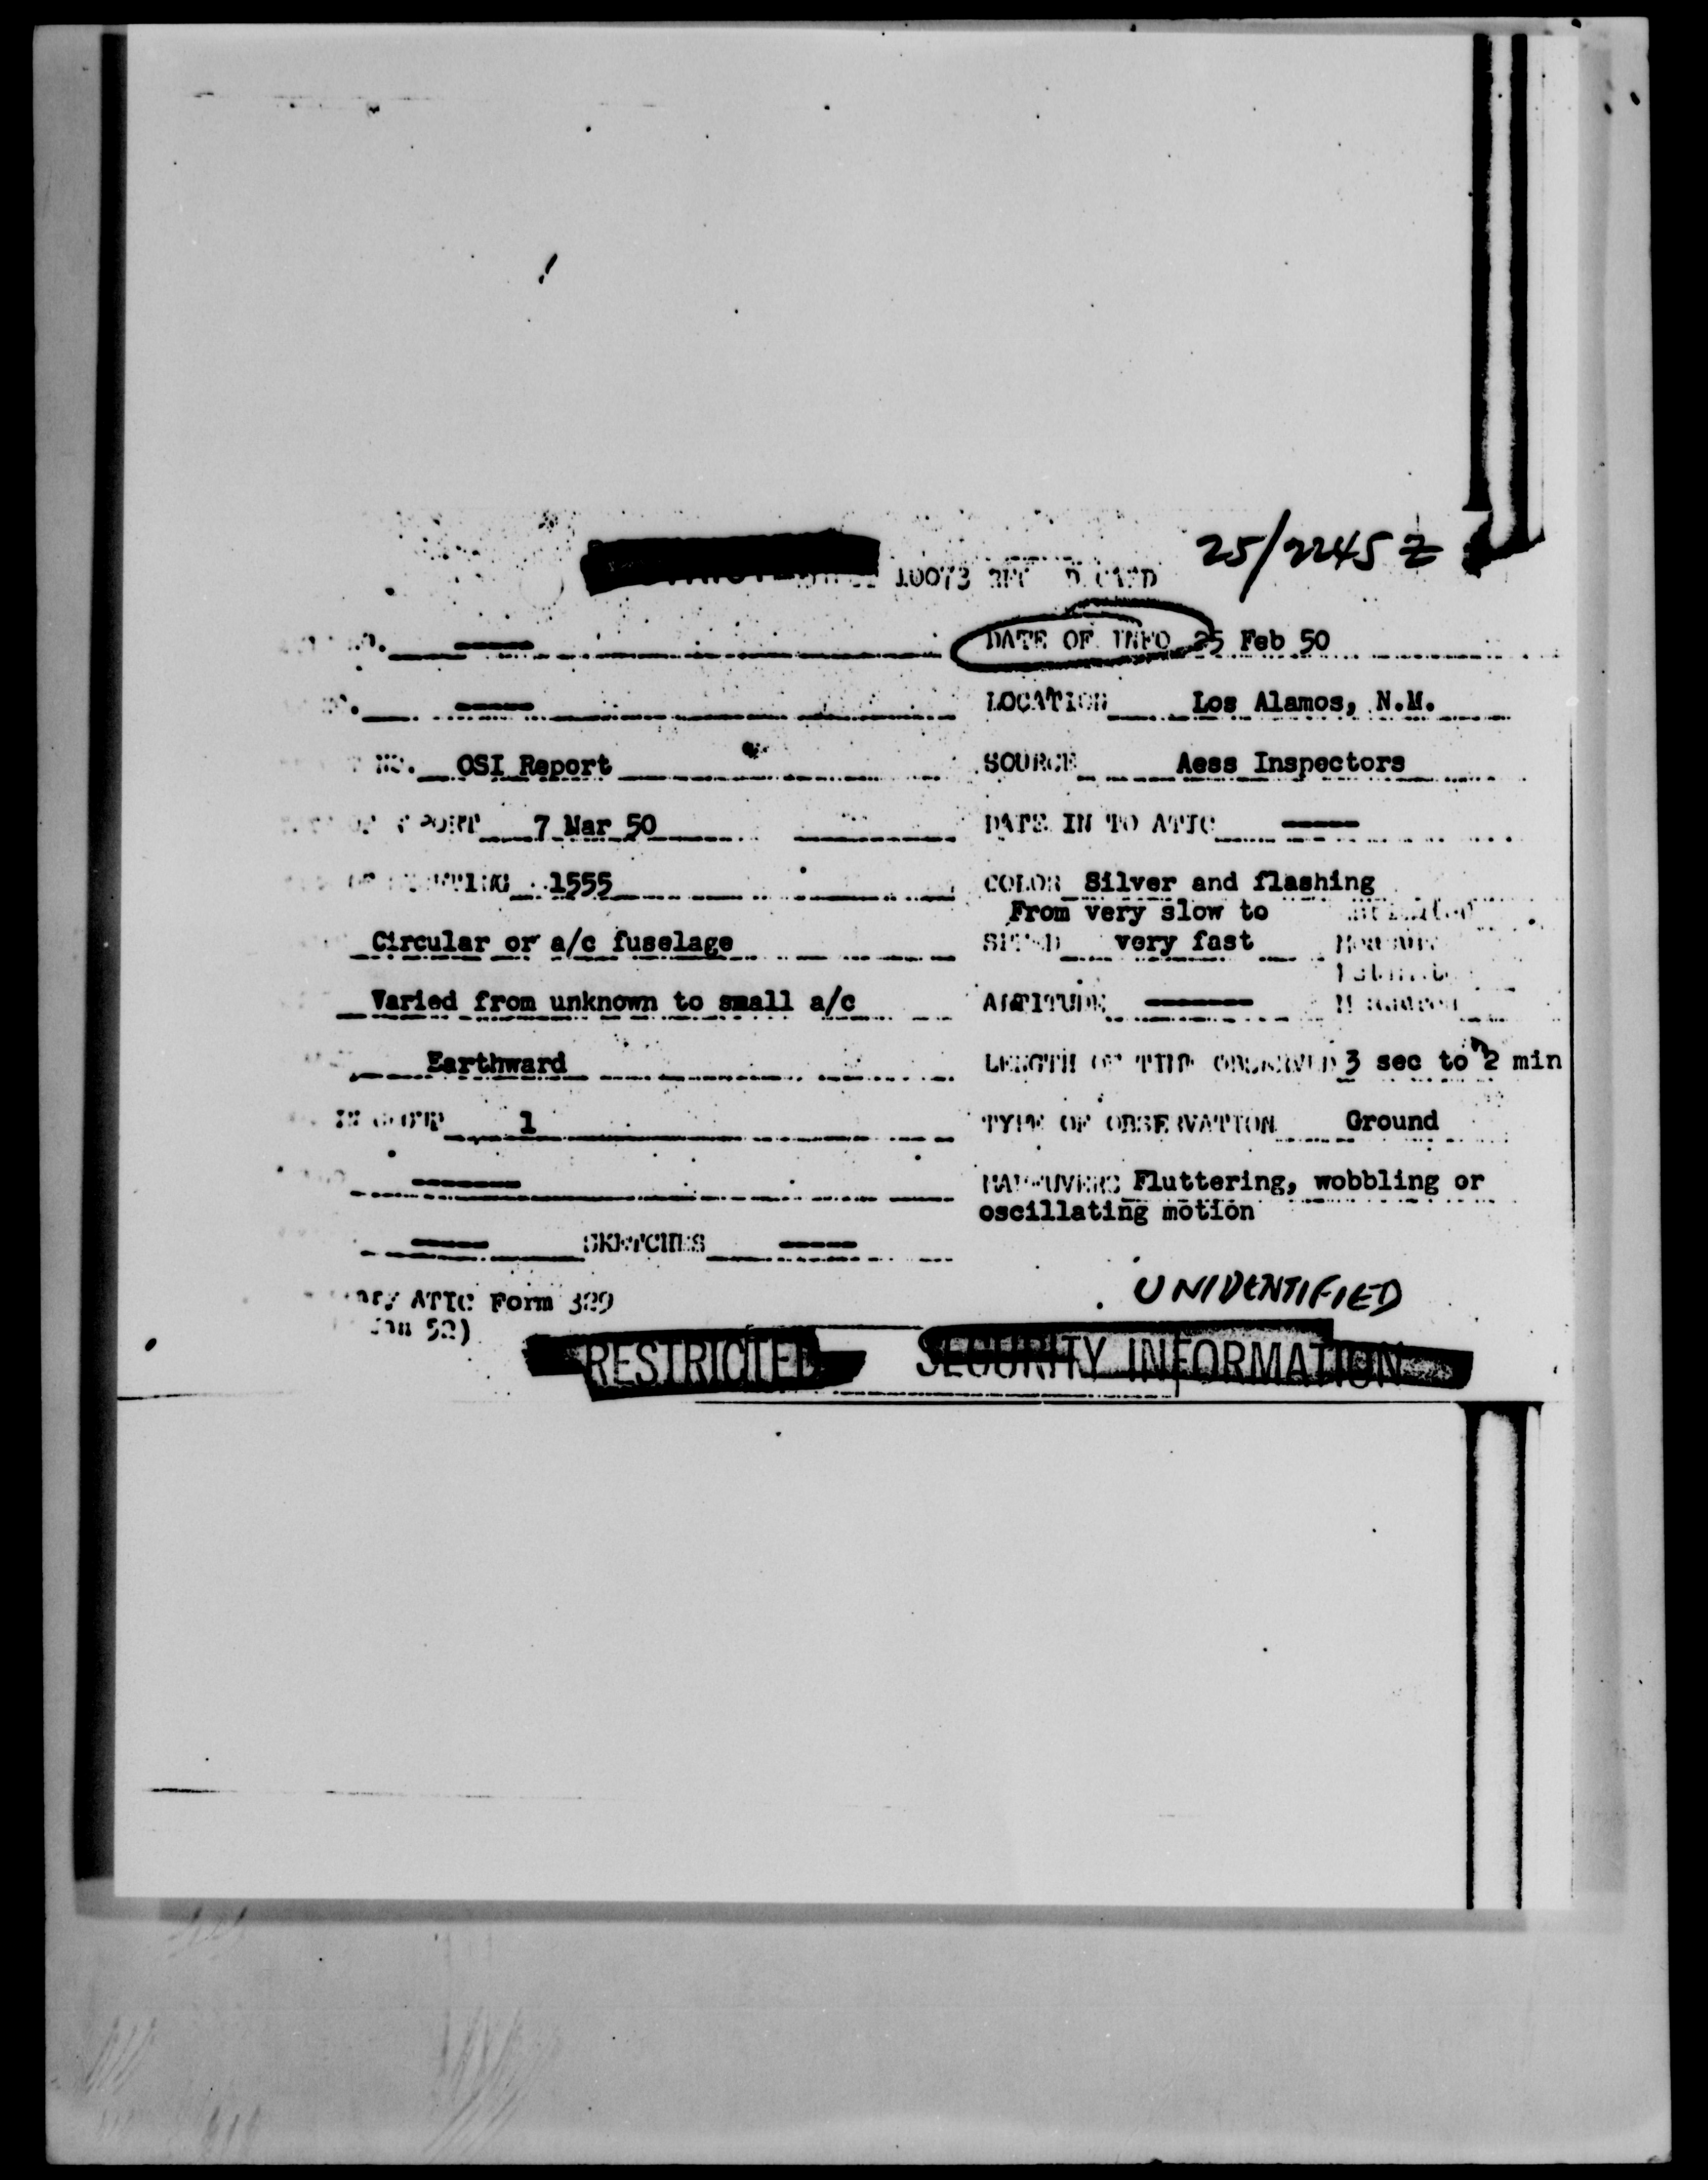 25/2245 Z
10073
DATE OF INFO 25 Feb 50
LOCATION Los Alamos, N.M.
NO. OSI Report SOURCE Aess Inspectors
7 Mar 50 DATE IN TO ATIC
1555 COLOR Silver and flashing
From very slow to
Circular or a/c fuselage SPEED very fast
Varied from unknown to small a/c ALTITUDE
Earthward LENGTH OF TIME OBSERVED 3 sec to 2 min
IN GROUP 1 TYPE OF OBSERVATION Ground
MANEUVERS Fluttering, wobbling or
oscillating motion
SKETCHES
UNIDENTIFIED
ATIC Form 329
Jan 52)
RESTRICTED SECURITY INFORMATION